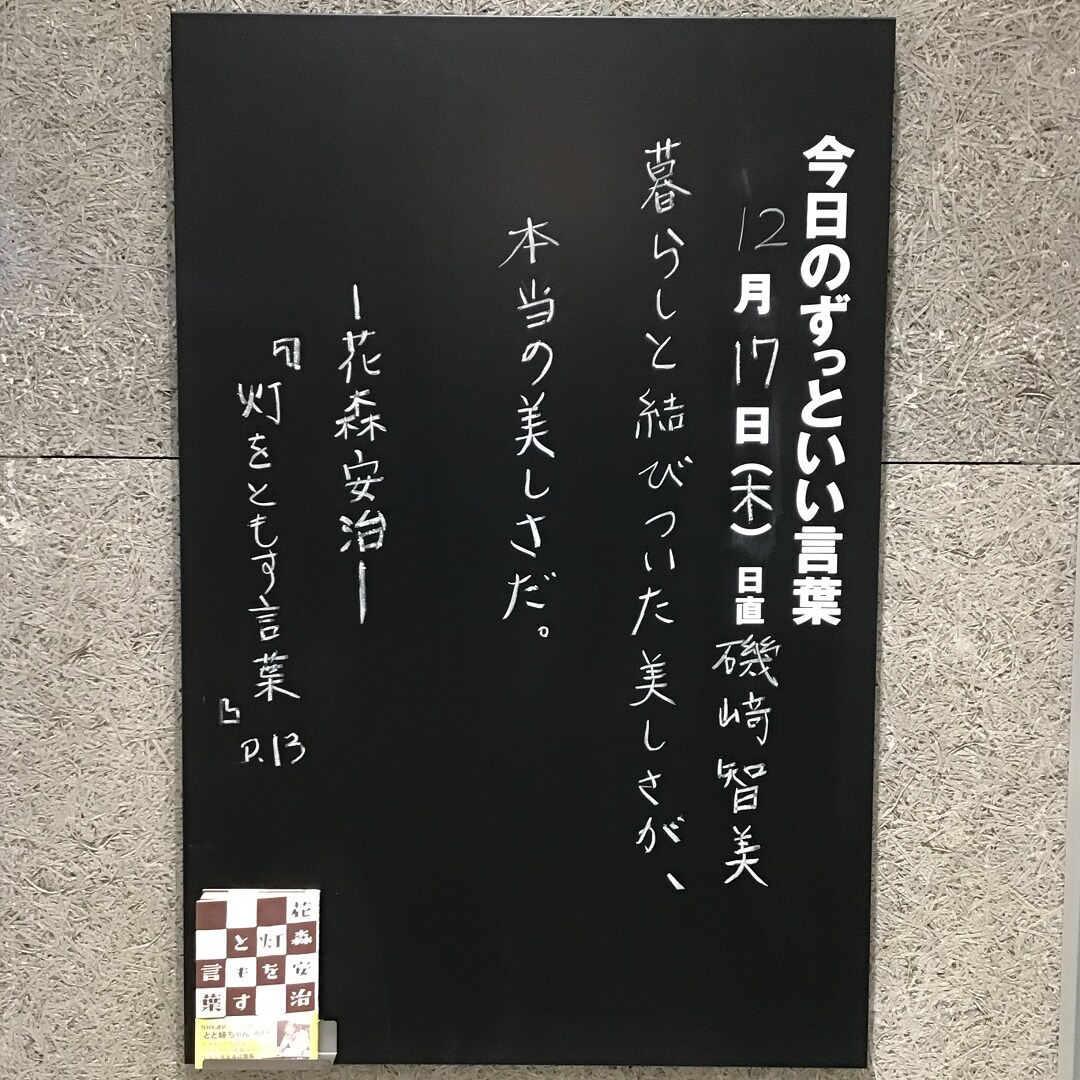 今日のずっといい言葉
12月17日(木) 日直 磯﨑智美
暮らしと結びついた美しさが、
本当の美しさだ。
ー花森安治ー
『灯をともす言葉』P.13
花森安治
灯を
ともす
言葉
NHK連続
とと姉ちゃん